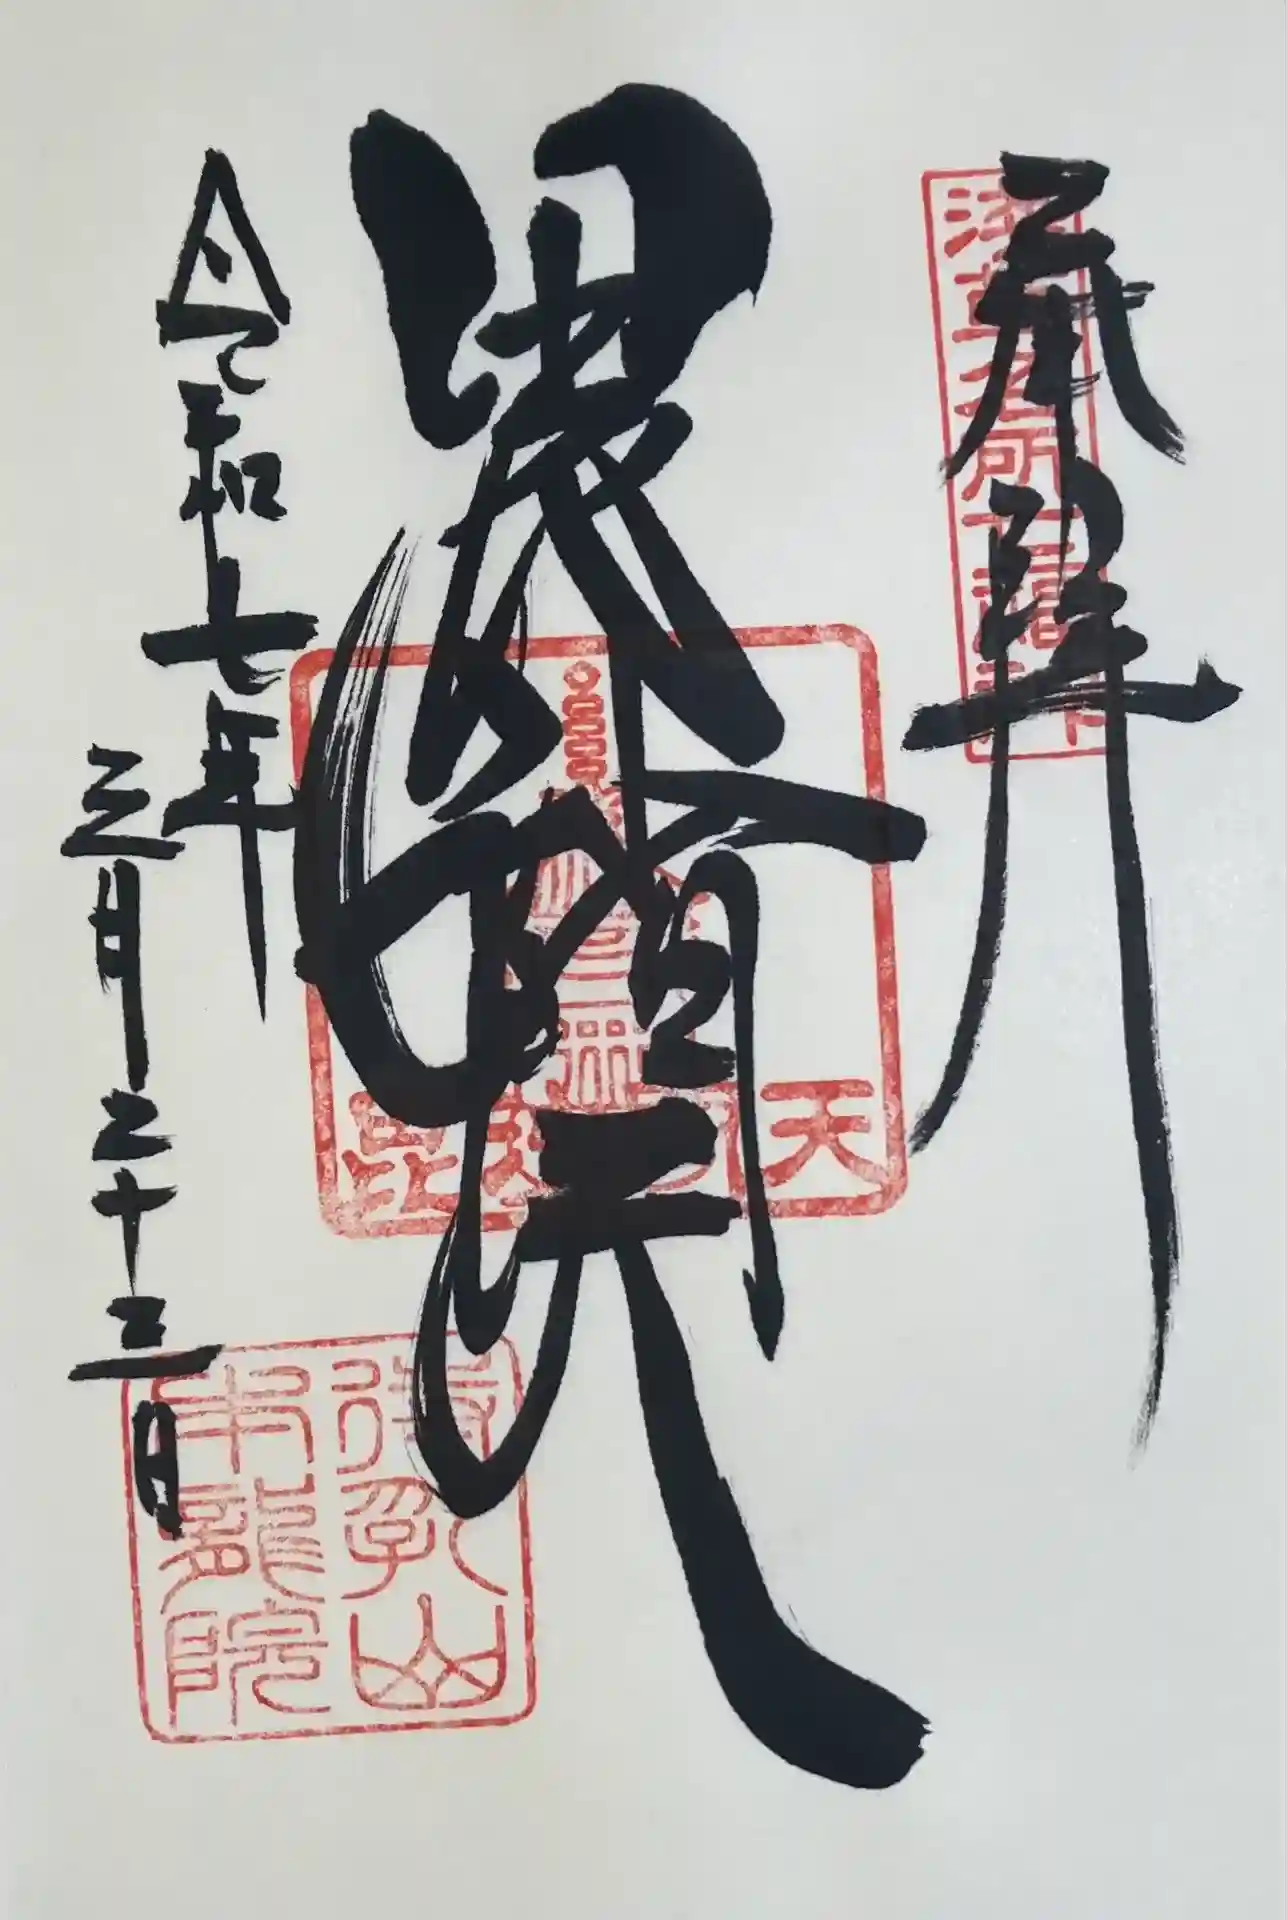 奉拝
浅草名所七福神
毘沙門天
毘沙門天
令和七年
三月二十三日
待乳山
本龍院